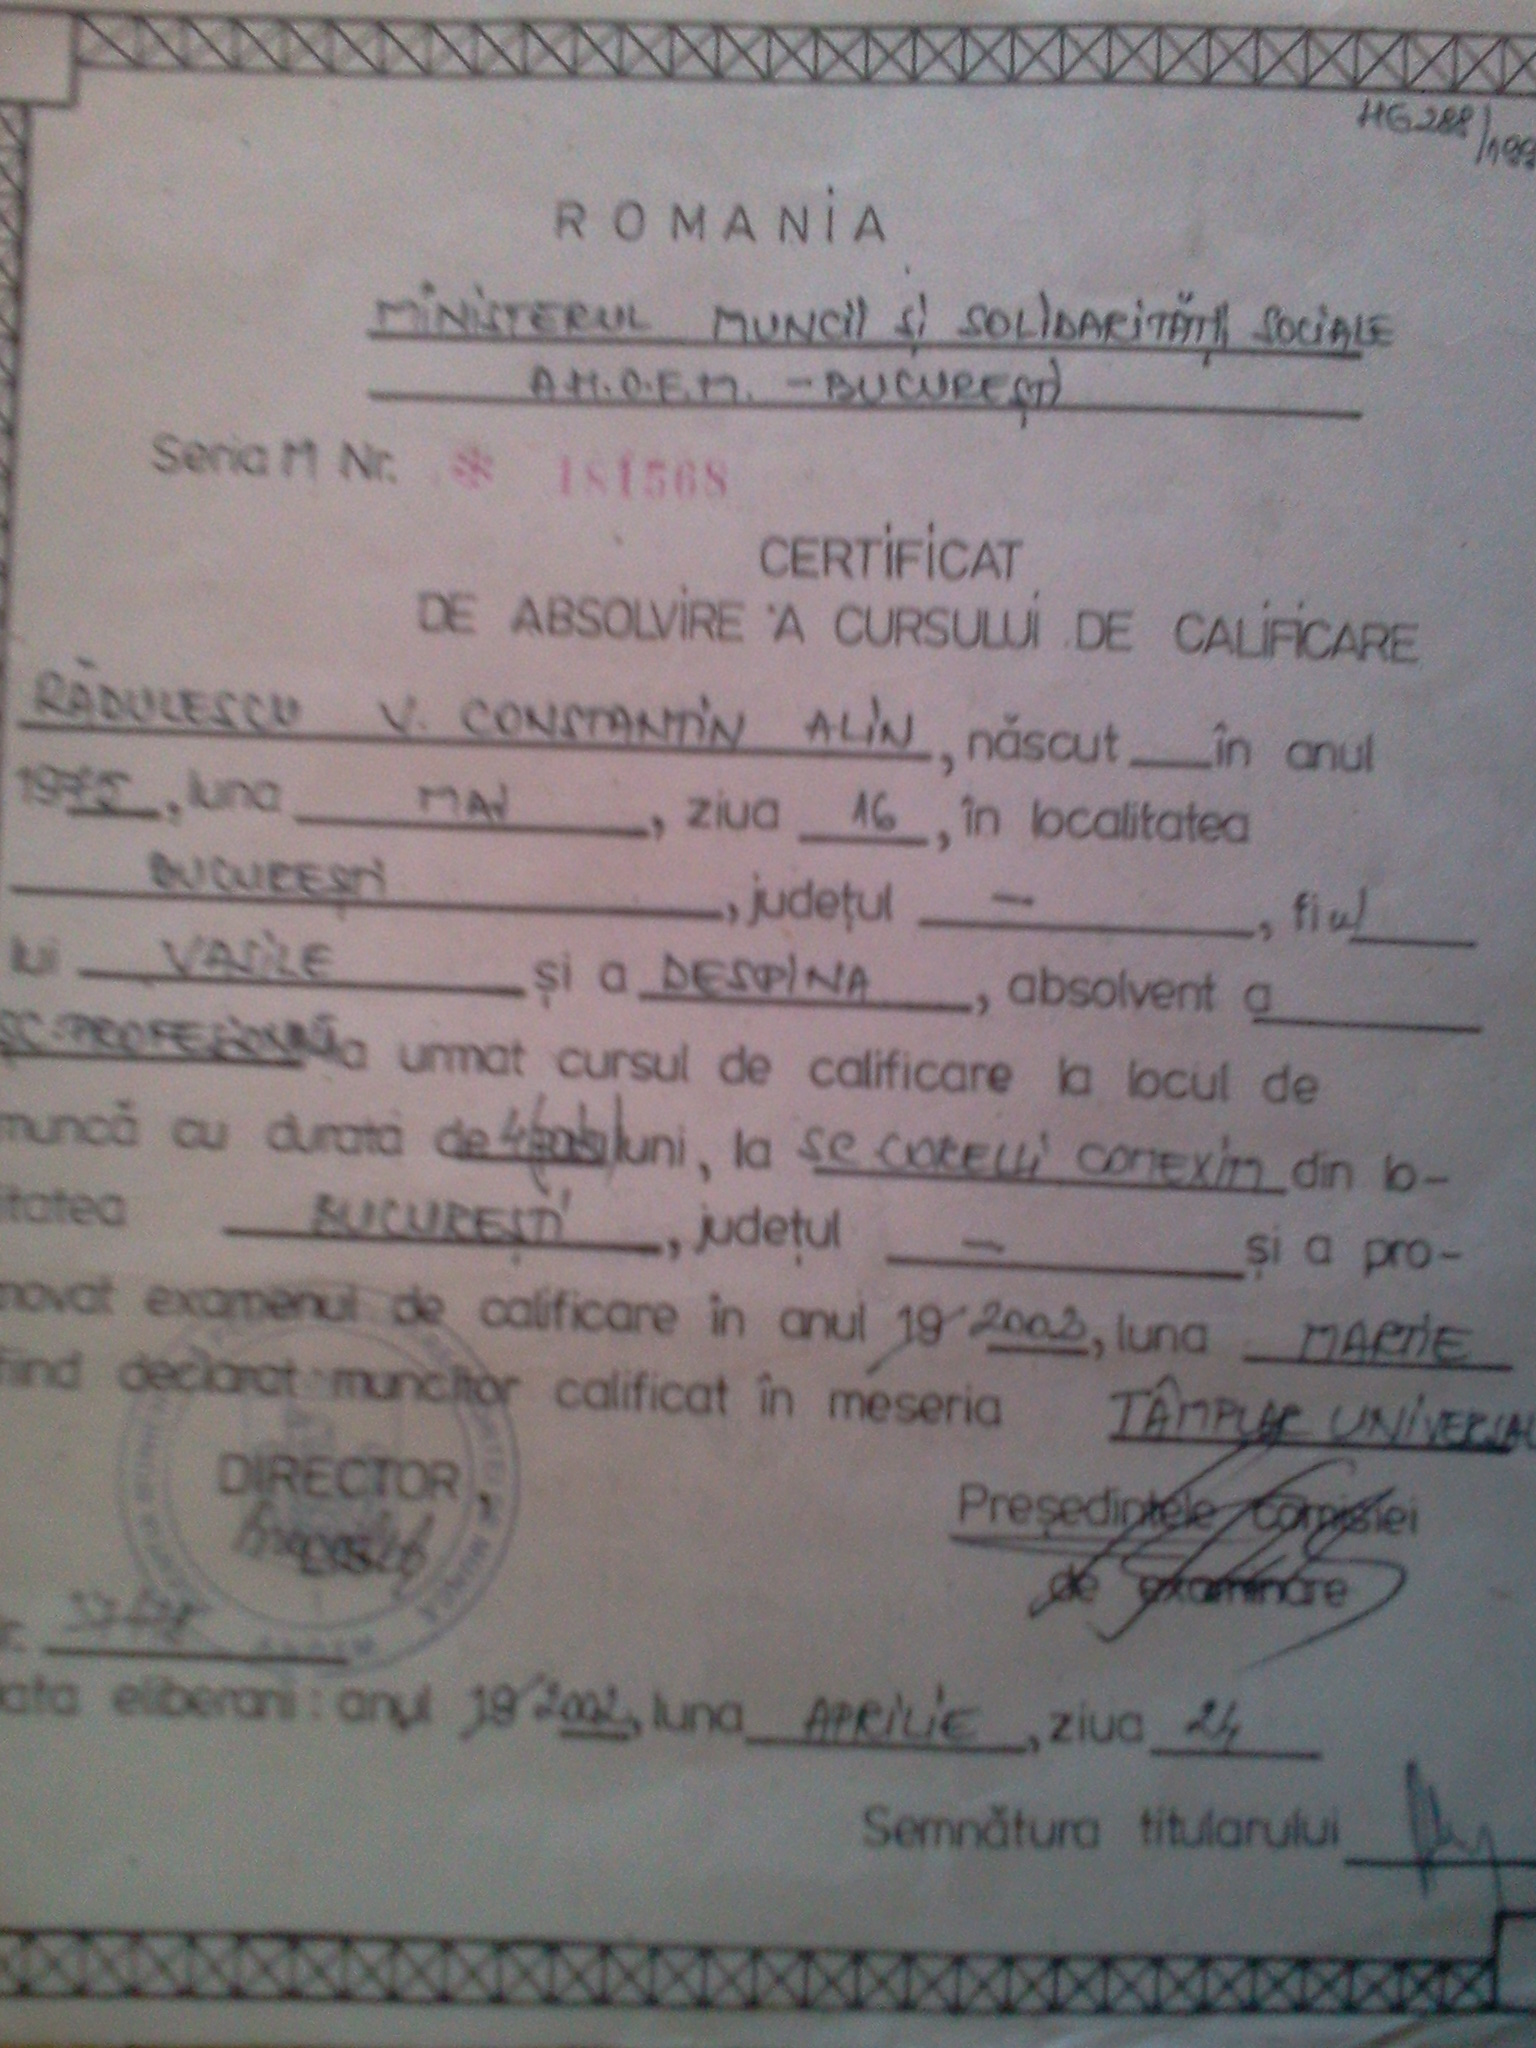 HG 288/199
ROMANIA
MINISTERUL MUNCII ȘI SOLIDARITĂȚII SOCIALE
A.M.O.F.M. - BUCUREȘTI
Seria M Nr. * 181568
CERTIFICAT
DE ABSOLVIRE A CURSULUI DE CALIFICARE
RĂDULESCU V. CONSTANTIN ALIN, născut în anul
1975, luna MAI, ziua 16, în localitatea
BUCUREȘTI, județul -, fiul
lui VASILE și a DESPINA, absolvent a
SC. PROFESIONALĂ a urmat cursul de calificare la locul de
muncă cu durată de 4 luni, la SC CORELLI COMEXIM din lo-
itatea BUCUREȘTI, județul - și a pro-
movat examenul de calificare în anul 19 2002, luna MARTIE
fiind declarat muncitor calificat în meseria TÂMPLAR UNIVERSAL
DIRECTOR, Președintele comisiei
de examinare
ata eliberării: anul 19 2002, luna APRILIE, ziua 24
Semnătura titularului